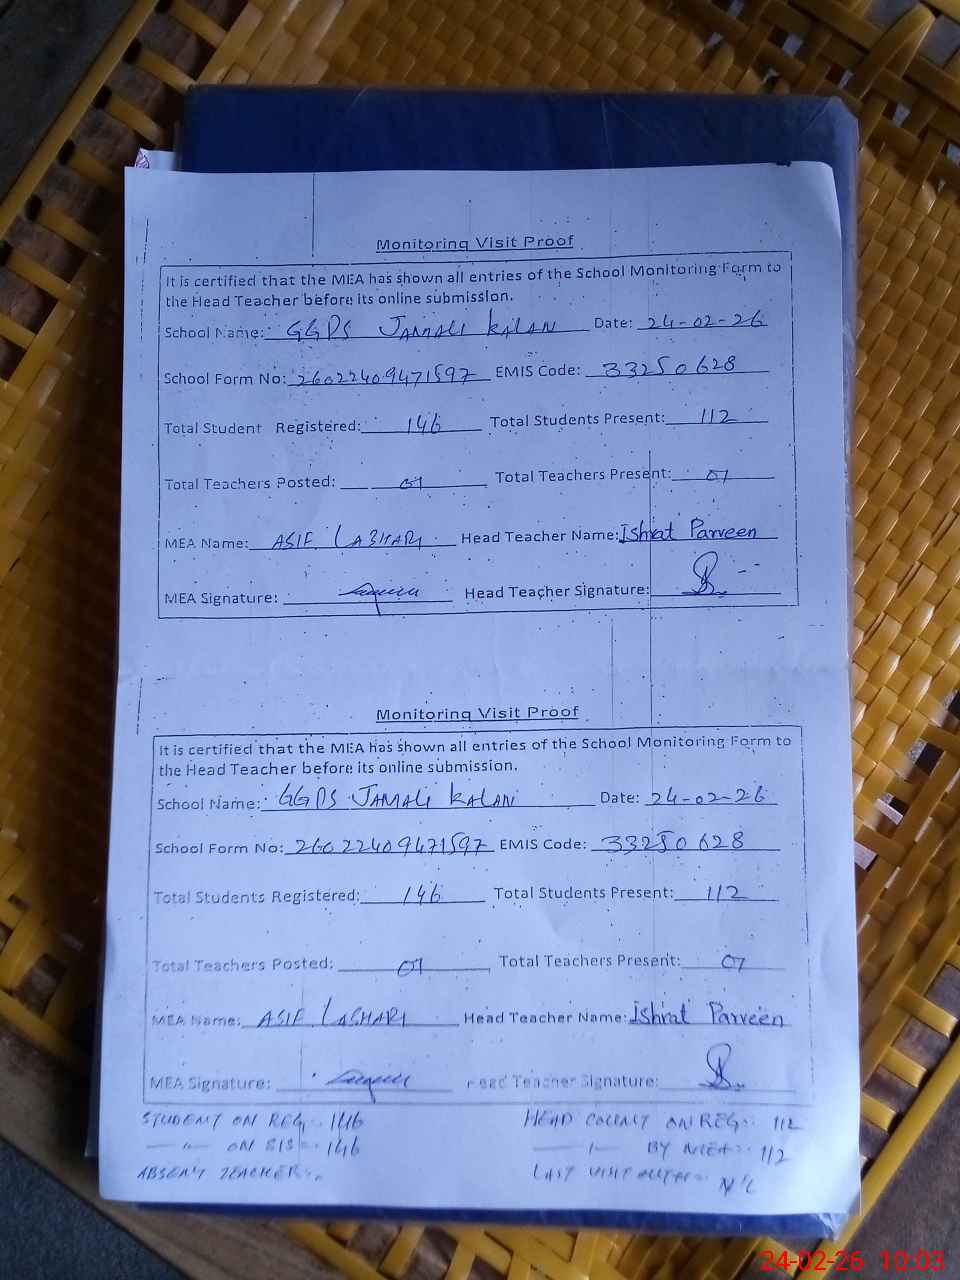 Monitoring Visit Proof
It is certified that the MEA has shown all entries of the School Monitoring Form to
the Head Teacher before its online submission.
School Name: GGPS JAMALI KALAN Date: 24-02-26
School Form No: 26022409471597 EMIS Code: 33250628
Total Student Registered: 146 Total Students Present: 112
Total Teachers Posted: 07 Total Teachers Present: 07
MEA Name: ASIF LASHARI Head Teacher Name: Ishrat Parveen
MEA Signature: Head Teacher Signature:
Monitoring Visit Proof
It is certified that the MEA has shown all entries of the School Monitoring Form to
the Head Teacher before its online submission.
School Name: GGPS JAMALI KALAN Date: 24-02-26
School Form No: 26022409471597 EMIS Code: 33250628
Total Students Registered: 146 Total Students Present: 112
Total Teachers Posted: 07 Total Teachers Present: 07
MEA Name: ASIF LASHARI Head Teacher Name: Ishrat Parveen
MEA Signature: Head Teacher Signature:
STUDENT ON REG:- 146 HEAD COUNT ON REG:- 112
—〃— ON SIS:- 146 —〃— BY MEA:- 112
ABSENT TEACHER:- LAST VISIT
24-02-26 10:03